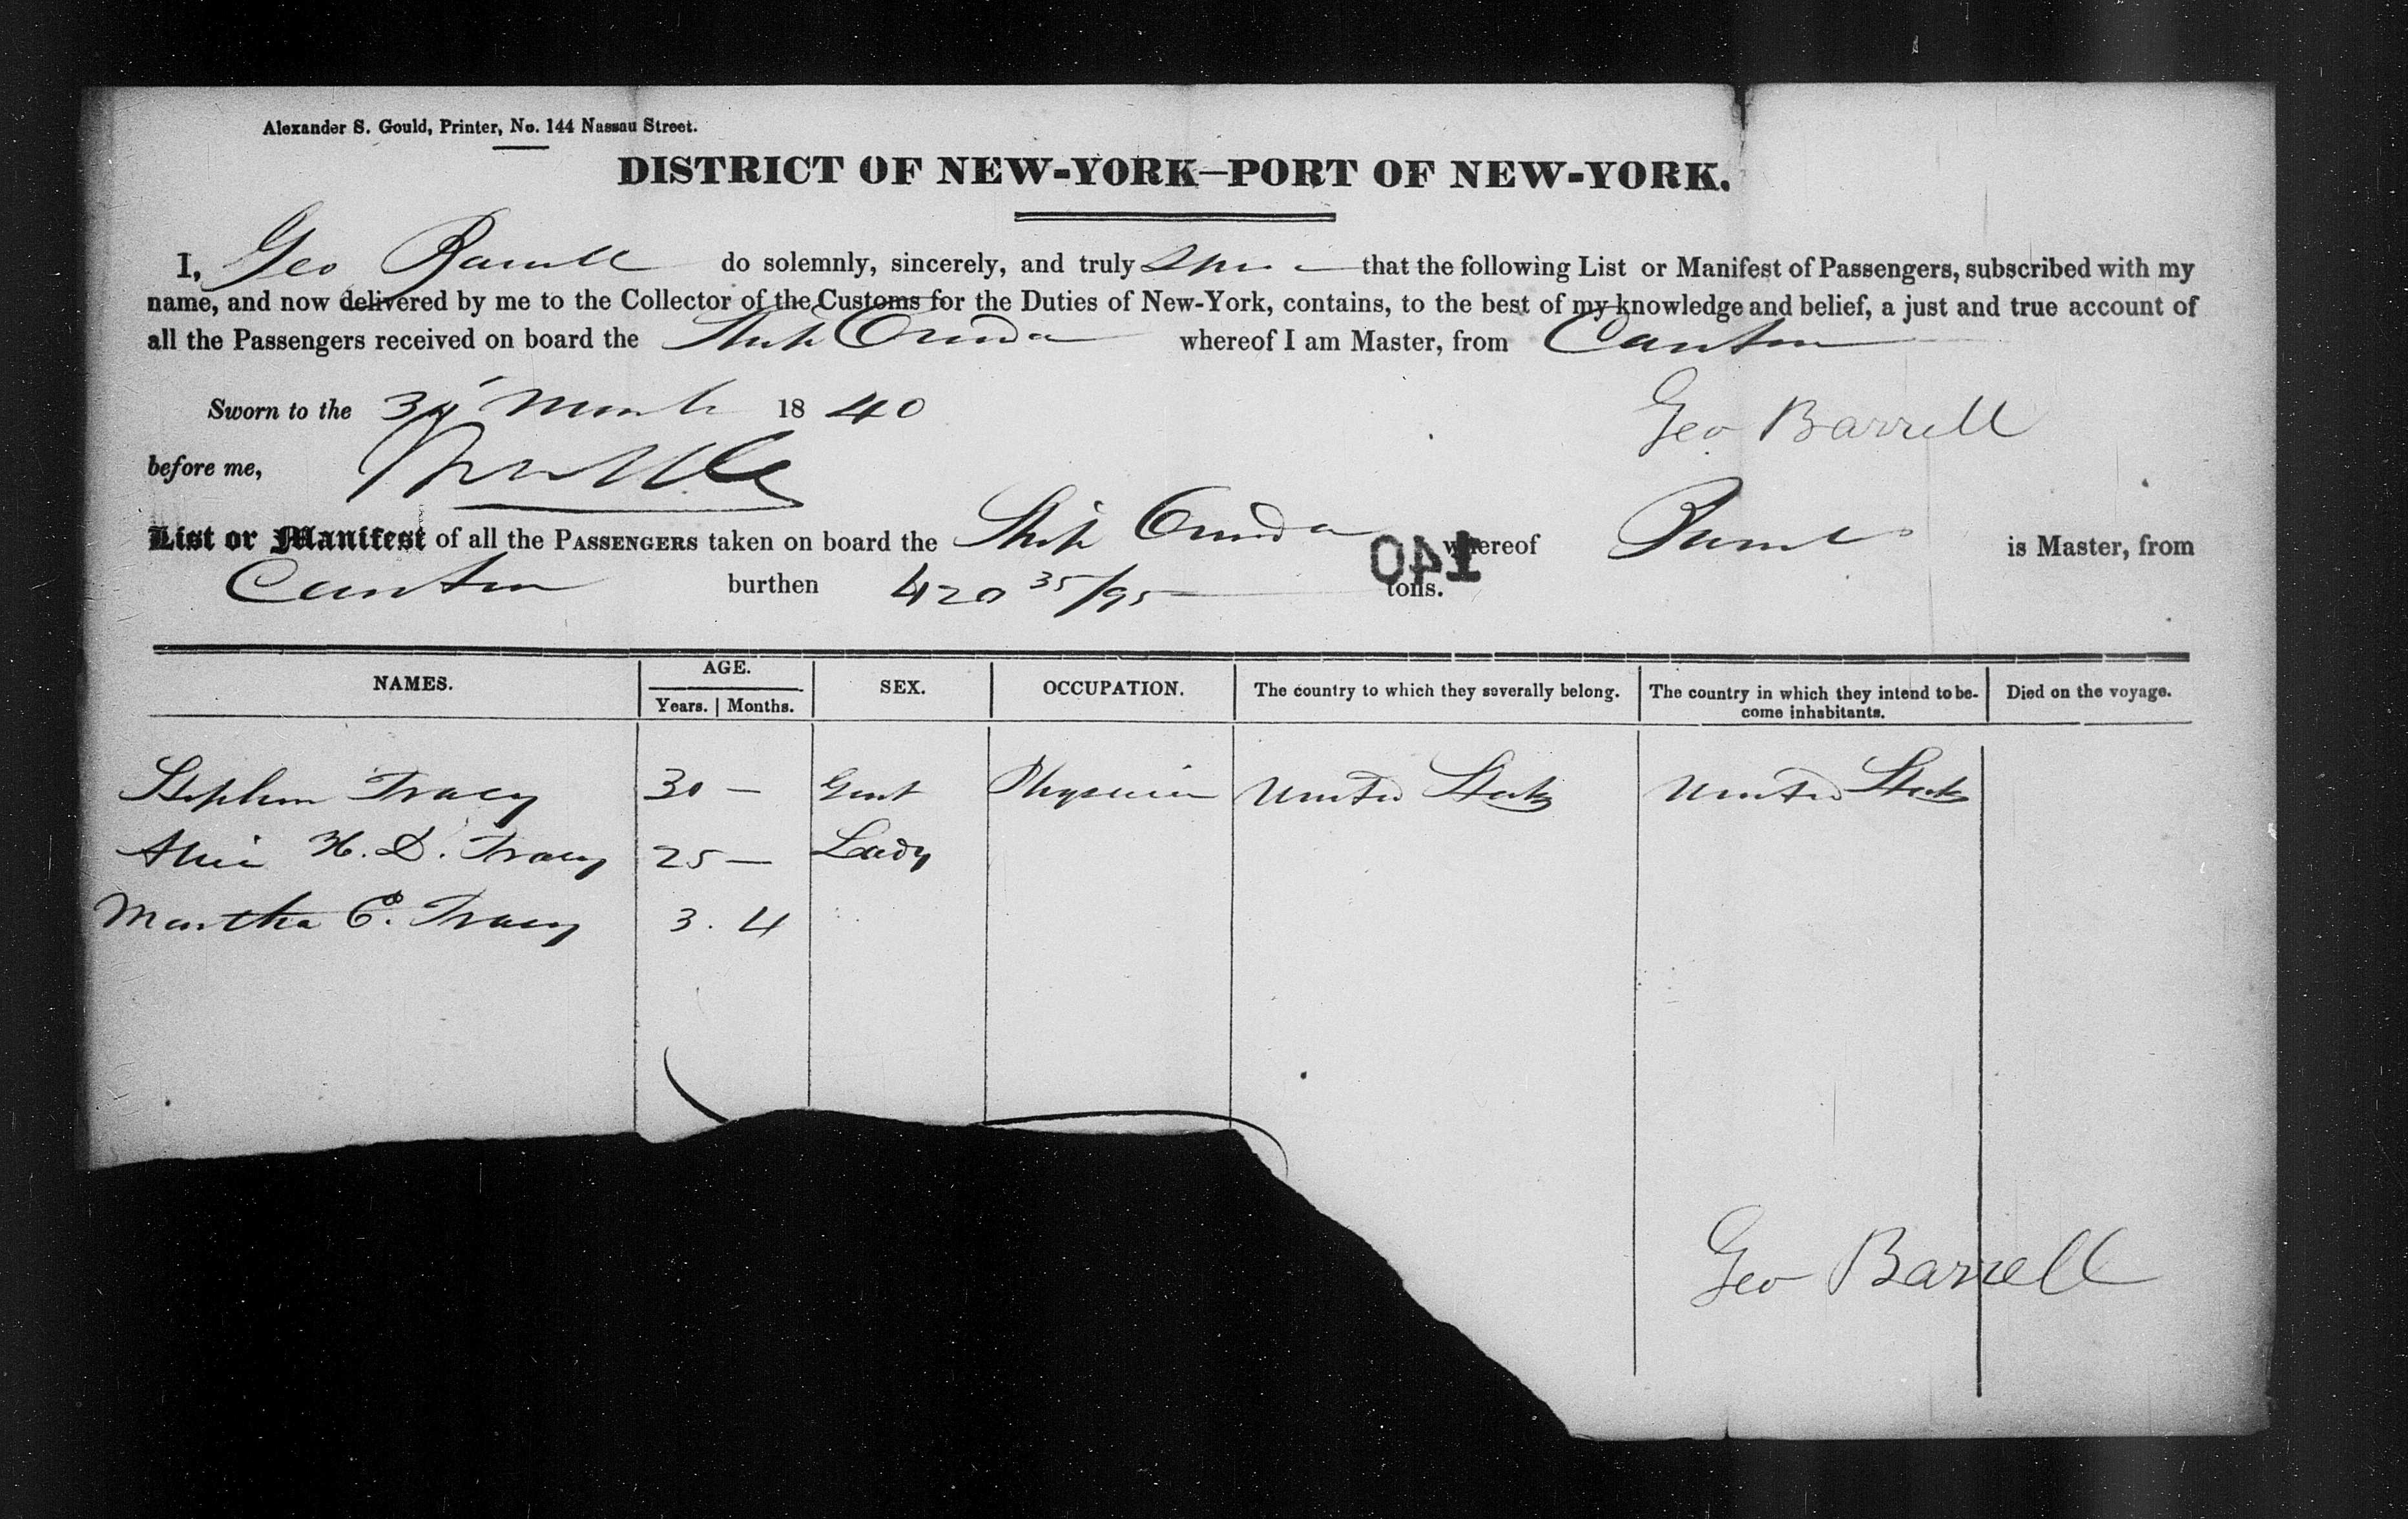 Alexander S. Gould, Printer, No. 144 Nassau Street.
DISTRICT OF NEW-YORK—PORT OF NEW-YORK.
I, Geo Barrell do solemnly, sincerely, and truly that the following List or Manifest of Passengers, subscribed with my
name, and now delivered by me to the Collector of the Customs for the Duties of New-York, contains, to the best of my knowledge and belief, a just and true account of
all the Passengers received on board the Ship whereof I am Master, from Canton
Sworn to the March 1840
Geo Barrell
before me,
List or Manifest of all the PASSENGERS taken on board the Ship whereof Barrell is Master, from
Canton burthen 420 35/95 tons.
140
NAMES. AGE. SEX. OCCUPATION. The country to which they severally belong. The country in which they intend to become inhabitants. Died on the voyage.
Years. Months.
Stephen Tracy 30 — Gent Physician United States United States
H. D. Tracy 25 — Lady
Martha E. Tracy 3. 4
Geo Barrell